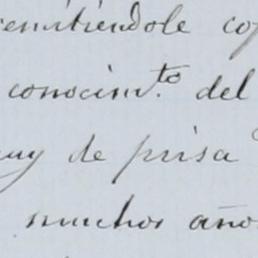 remitiéndole co
conocim.to del
muy de prisa
muchos años